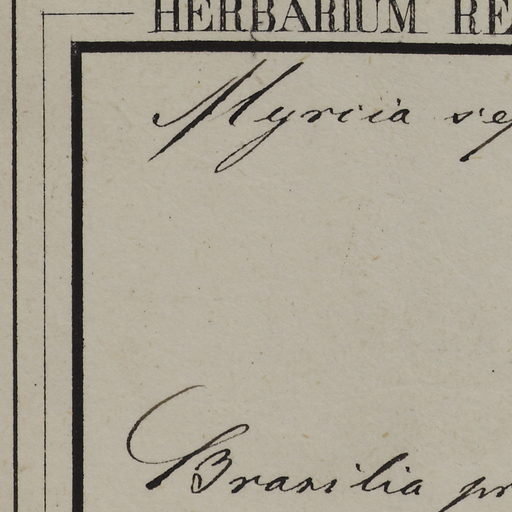 HERBARIUM RE
Myrcia se
Brasilia pr